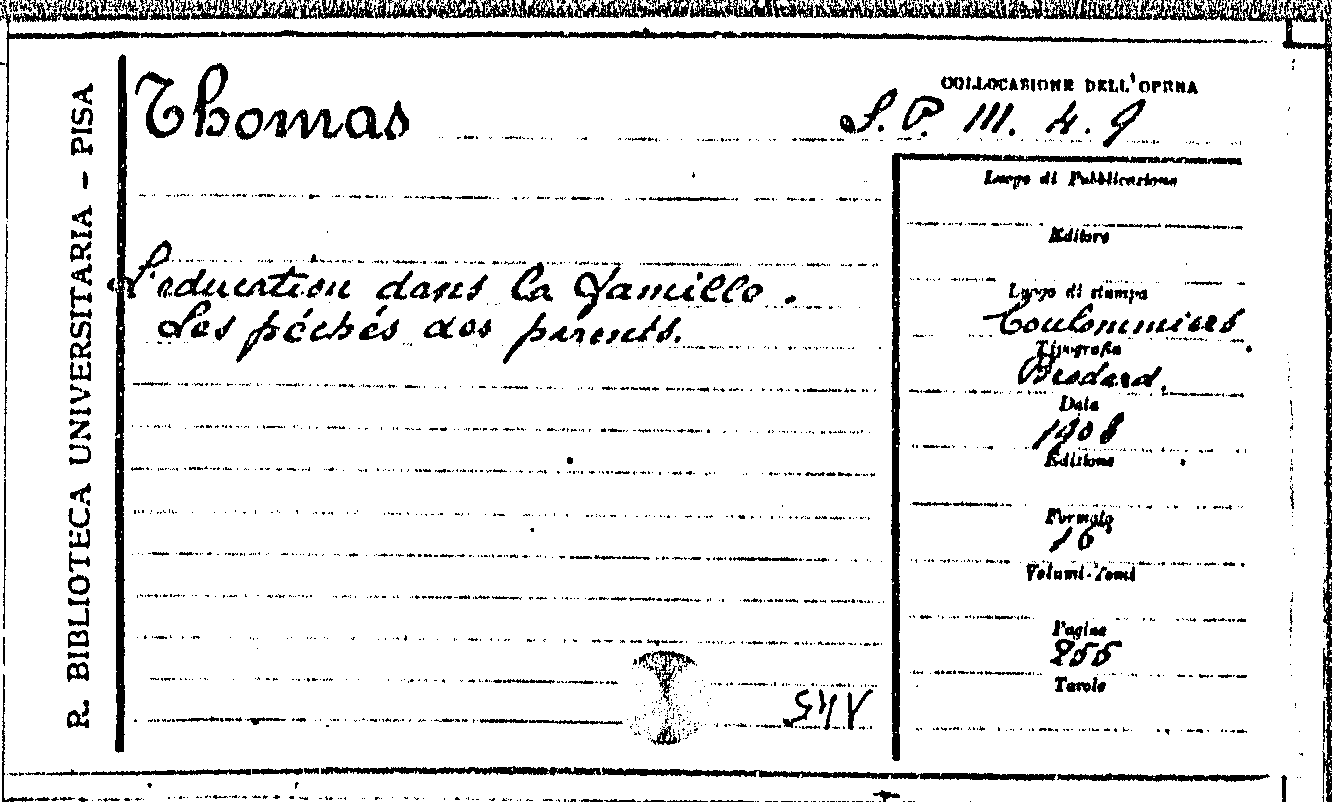 R. BIBLIOTECA UNIVERSITARIA - PISA
Thomas
COLLOCAZIONE DELL'OPERA
S. P. III. 4. 9
L'education dans la famille.
Les péchés des parents.
Luogo di Pubblicazione
Editore
Luogo di stampa
Coulommiers
Tipografia
Brodard.
Data
1908
Edizione
Formato
16°
Volumi-Tomi
Pagine
255
Tavole